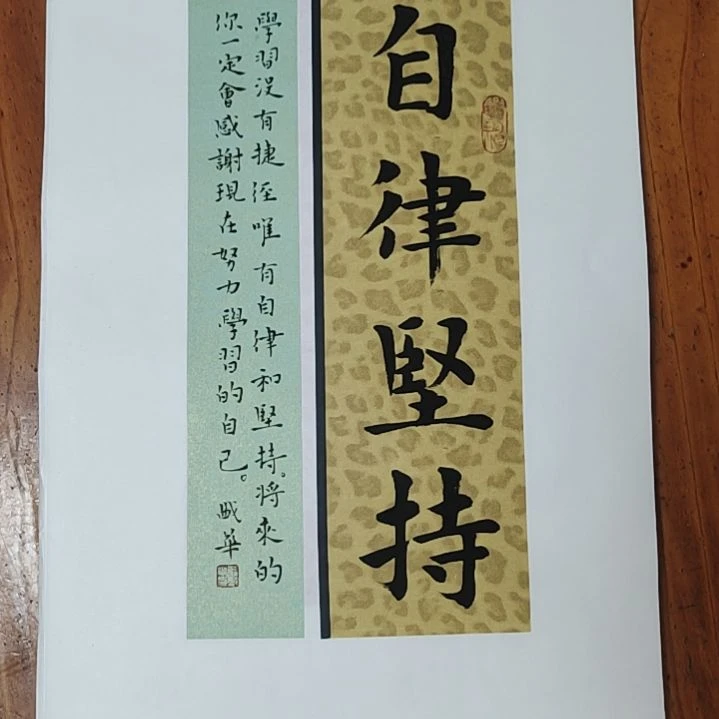 自律堅持
學習没有捷徑唯有自律和堅持。將來的
你一定會感謝現在努力學習的自己。